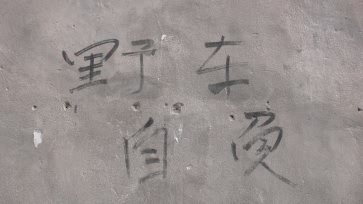 野车
自负